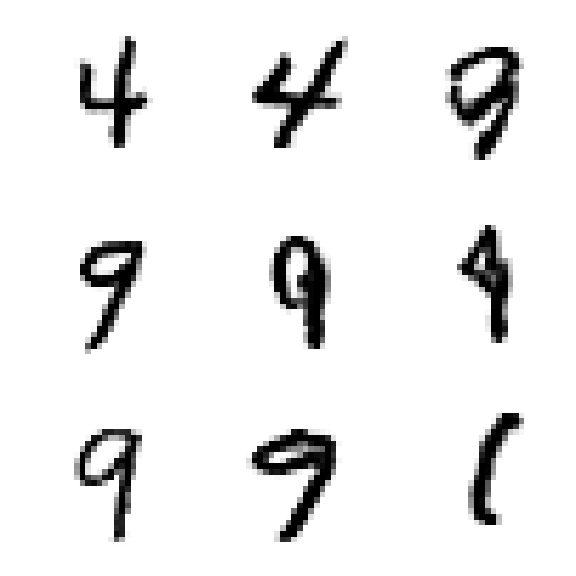 4 4 9
9 9 9
9 9